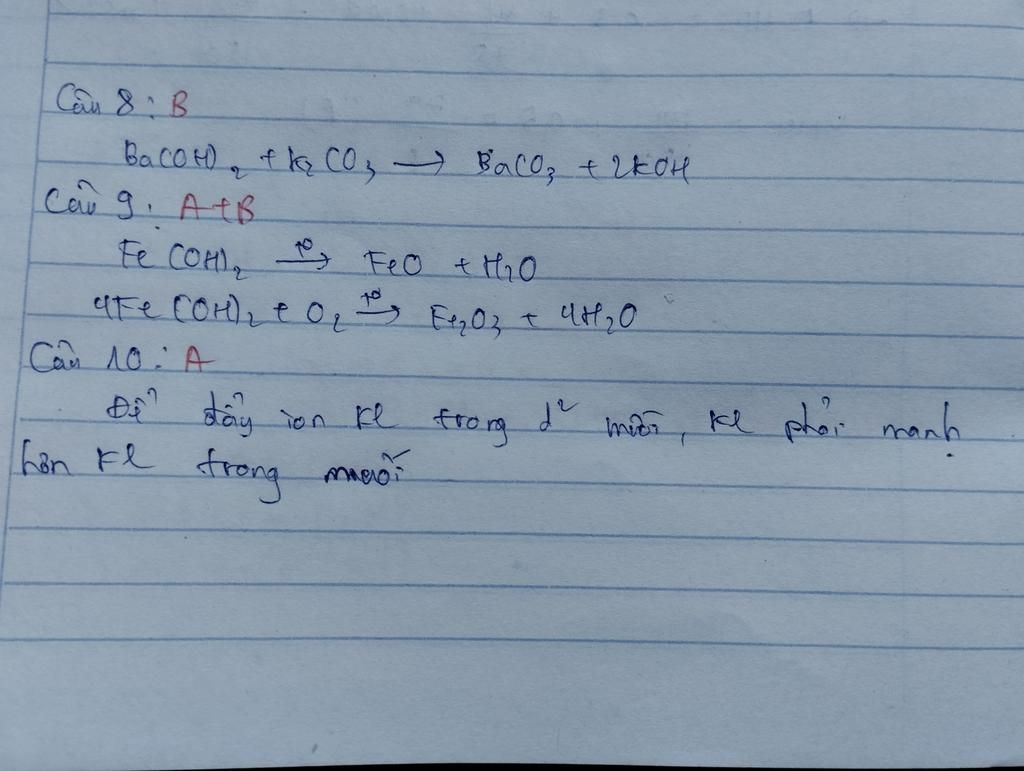 Câu 8: B
Ba(OH)₂ + K₂CO₃ → BaCO₃ + 2KOH
Câu 9: A+B
Fe(OH)₂ t⁰→ FeO + H₂O
4Fe(OH)₂ + O₂ t⁰→ Fe₂O₃ + 4H₂O
Câu 10: A
Để đẩy ion Kl trong d² muối, Kl phải mạnh
hơn Kl trong muối